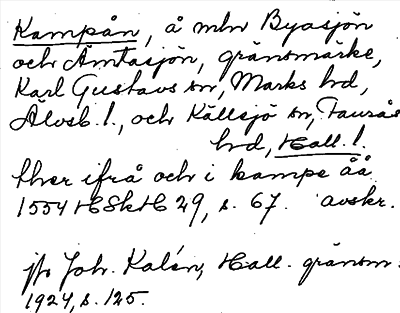 Kampån, å mln Byasjön
och Åmtasjön, gränsmärke,
Karl Gustavs sn, Marks hd,
Älvsb. l., och Källsjö sn, Faurås
hd, Hall. l.
ther ifrå och i kampe åå
1554 HSkH 29, s. 67. avskr.
jfr Joh. Kalén, Hall. gränsm.
1924, s. 125.